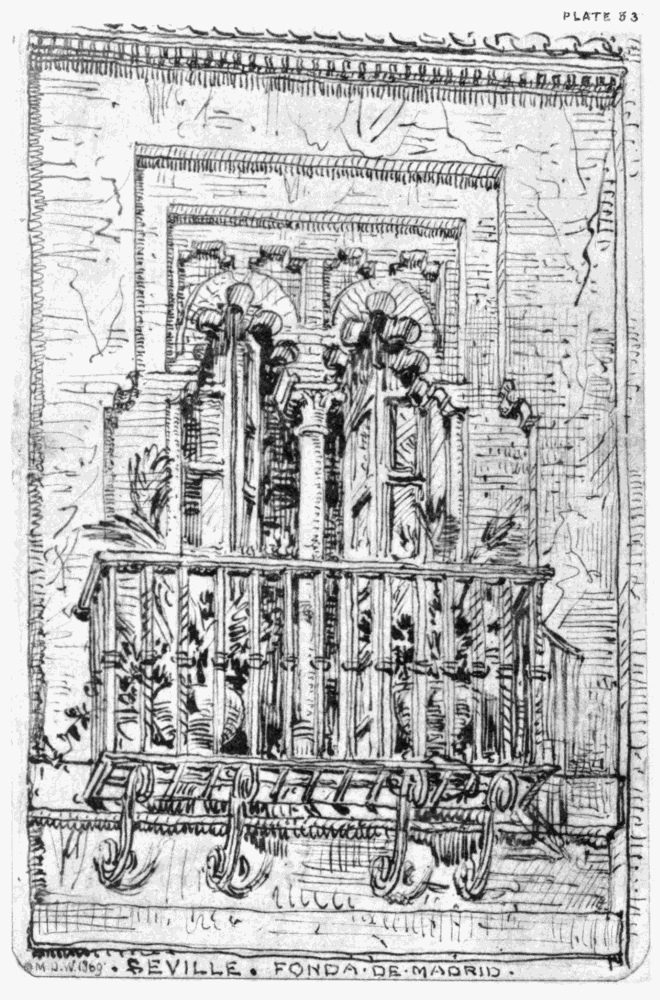 PLATE 53
M.D.W. 1869 · SEVILLE · FONDA · DE · MADRID ·